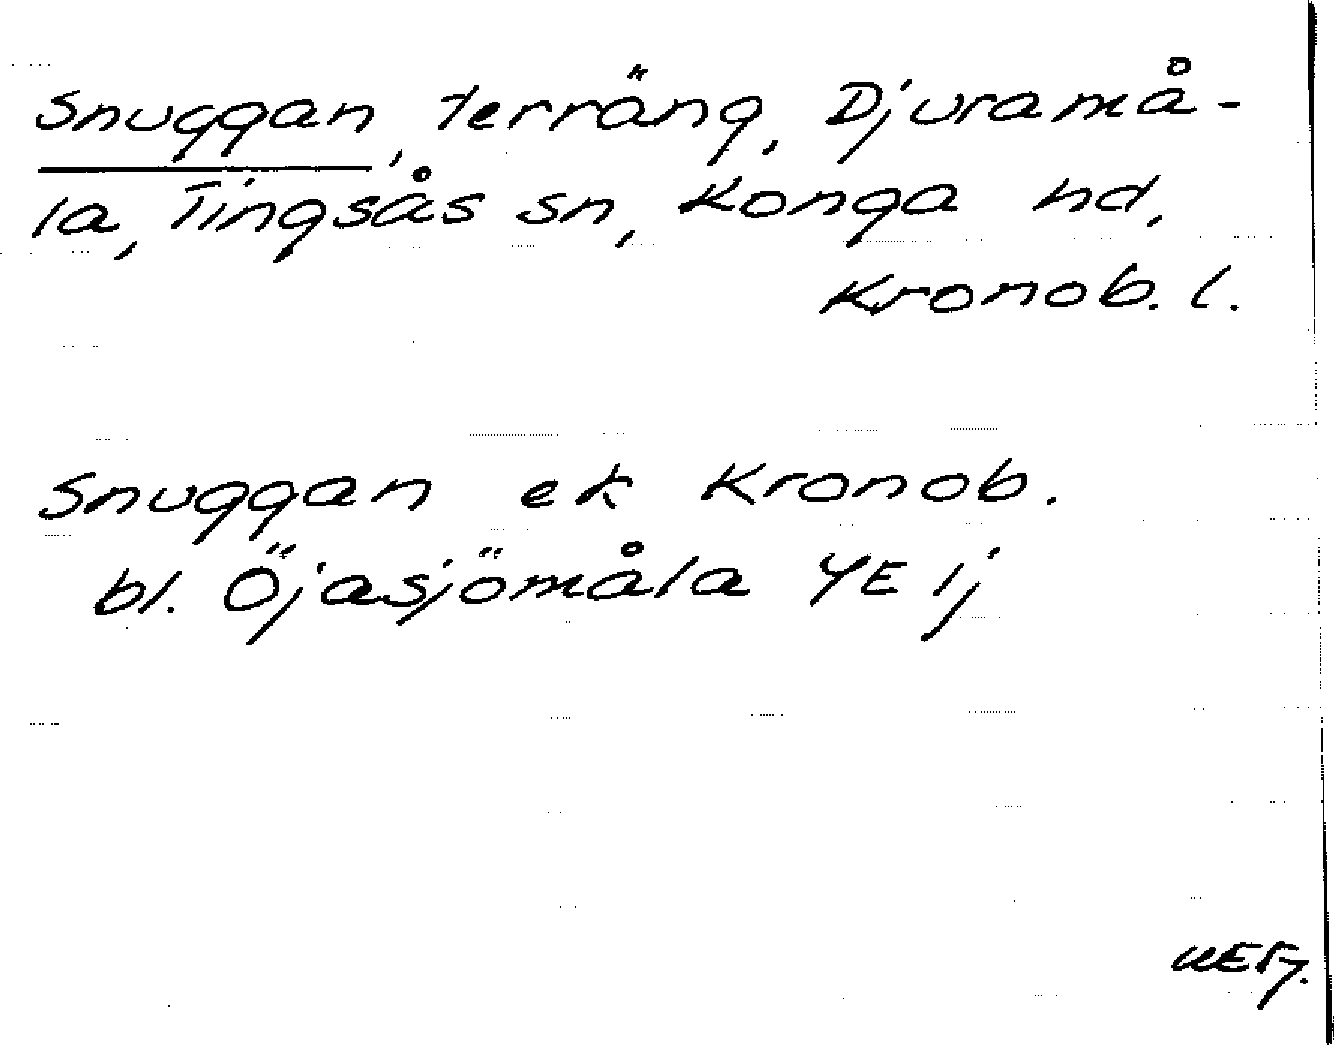 Snuggan, terräng, Djuramå-
la, Tingsås sn, Konga hd,
Kronob. l.
Snuggan ek Kronob.
bl. Öjasjömåla 4E 1j